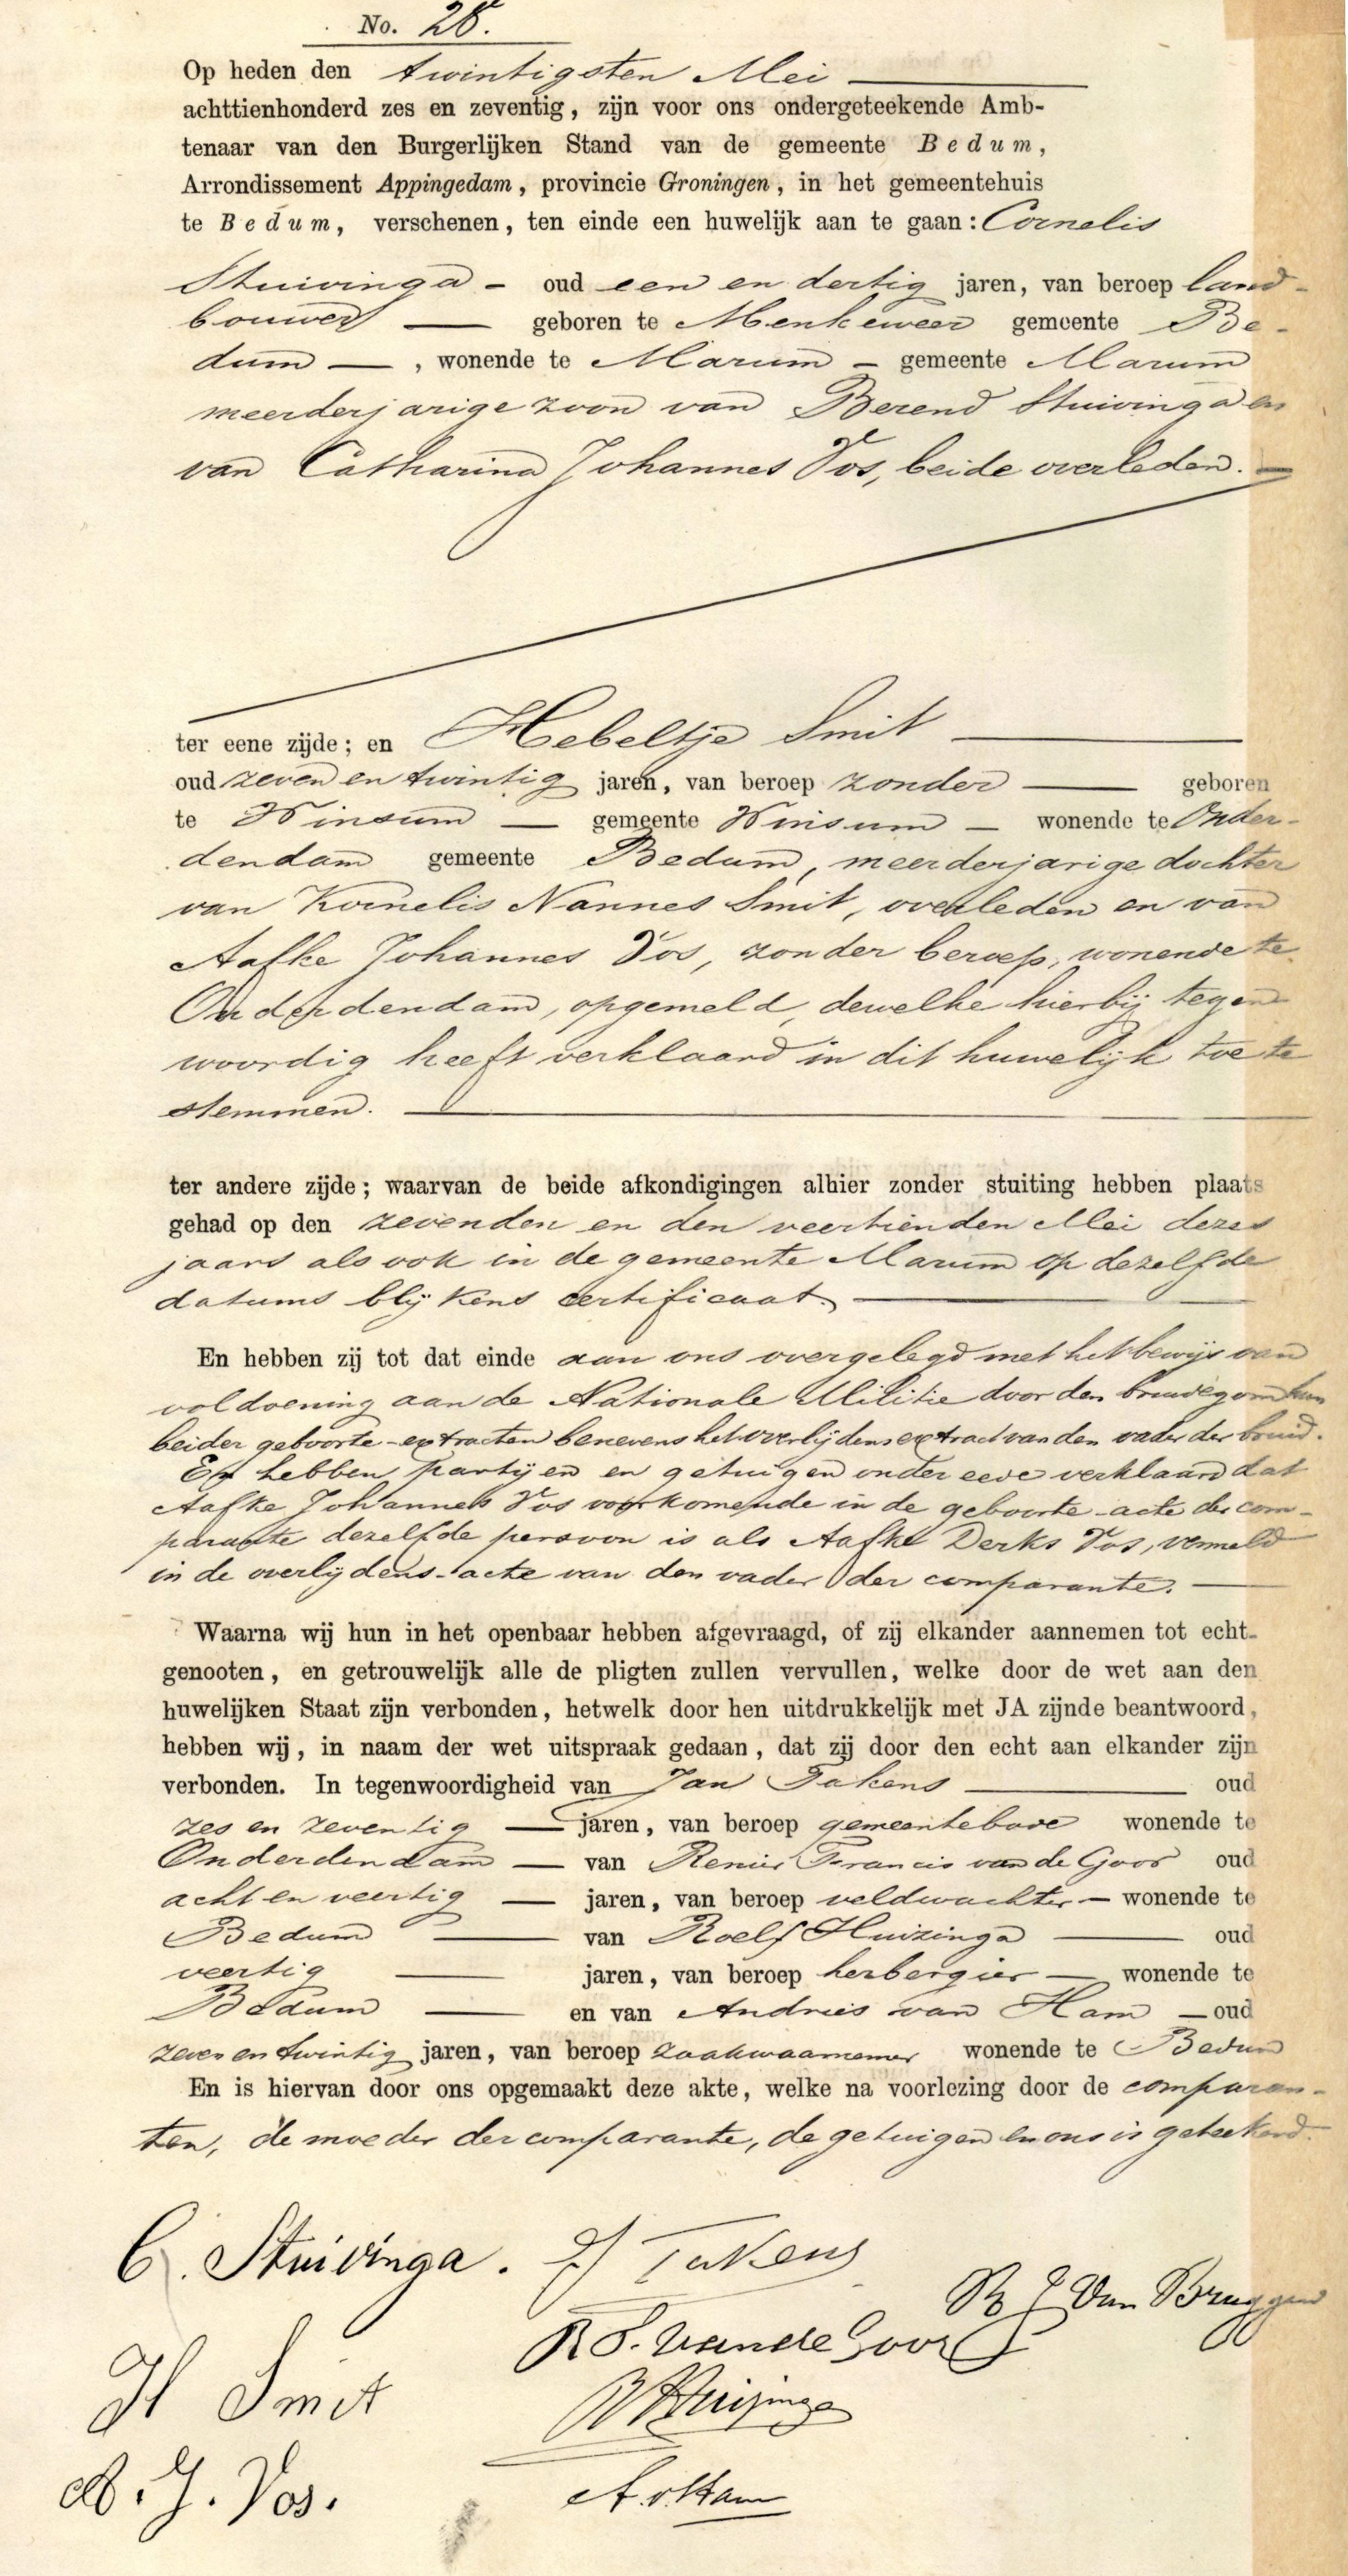 No. 28.
Op heden den twintigsten Mei
achttienhonderd zes en zeventig, zijn voor ons ondergeteekende Amb-
tenaar van den Burgerlijken Stand van de gemeente Bedum,
Arrondissement Appingedam, provincie Groningen, in het gemeentehuis
te Bedum, verschenen, ten einde een huwelijk aan te gaan: Cornelis
Stuivinga - oud een en dertig jaren, van beroep land-
bouwer — geboren te Menkeweer gemeente Be-
dum —, wonende te Marum - gemeente Marum
meerderjarige zoon van Berend Stuivinga en
van Catharina Johannes Vos, beide overleden. —
ter eene zijde; en Hebeltje Smit —
oud zeven en twintig jaren, van beroep zonder — geboren
te Winsum — gemeente Winsum — wonende te Onder-
dendam gemeente Bedum, meerderjarige dochter
van Kornelis Nannes Smit, overleden en van
Aafke Johannes Vos, zonder beroep, wonende te
Onderdendam, opgemeld, dewelke hierbij tegen
woordig heeft verklaard in dit huwelijk toe te
stemmen. —
ter andere zijde; waarvan de beide afkondigingen alhier zonder stuiting hebben plaats
gehad op den zevenden en den veertienden Mei dezes
jaars als ook in de gemeente Marum op dezelfde
datums blijkens certificaat. —
En hebben zij tot dat einde aan ons overgelegd met het bewijs van
voldoening aan de Nationale Militie door den bruidegom hun
beider geboorte-extracten benevens het overlijdensextract van den vader der bruid.
En hebben partijen en getuigen onder eede verklaard dat
Aafke Johannes Vos voorkomende in de geboorte-acte der com-
parante dezelfde persoon is als Aafke Derks Vos, vermeld
in de overlijdens-acte van den vader der comparante. —
Waarna wij hun in het openbaar hebben afgevraagd, of zij elkander aannemen tot echt-
genooten, en getrouwelijk alle de pligten zullen vervullen, welke door de wet aan den
huwelijken Staat zijn verbonden, hetwelk door hen uitdrukkelijk met JA zijnde beantwoord,
hebben wij, in naam der wet uitspraak gedaan, dat zij door den echt aan elkander zijn
verbonden. In tegenwoordigheid van Jan Takens — oud
zes en zeventig — jaren, van beroep gemeentebode wonende te
Onderdendam — van Renier Francis van de Goor oud
acht en veertig — jaren, van beroep veldwachter — wonende te
Bedum — van Roelf Huizinga — oud
veertig — jaren, van beroep herbergier — wonende te
Bedum — en van Andries van Ham — oud
zeven en twintig jaren, van beroep zaakwaarnemer wonende te Bedum
En is hiervan door ons opgemaakt deze akte, welke na voorlezing door de comparan-
ten, de moeder der comparante, de getuigen en ons is geteekend.
C. Stuivinga. J Takens
van Bruggen
R F. van de Goor
H Smit
R Huizinga
A. J. Vos.
A. v. Ham